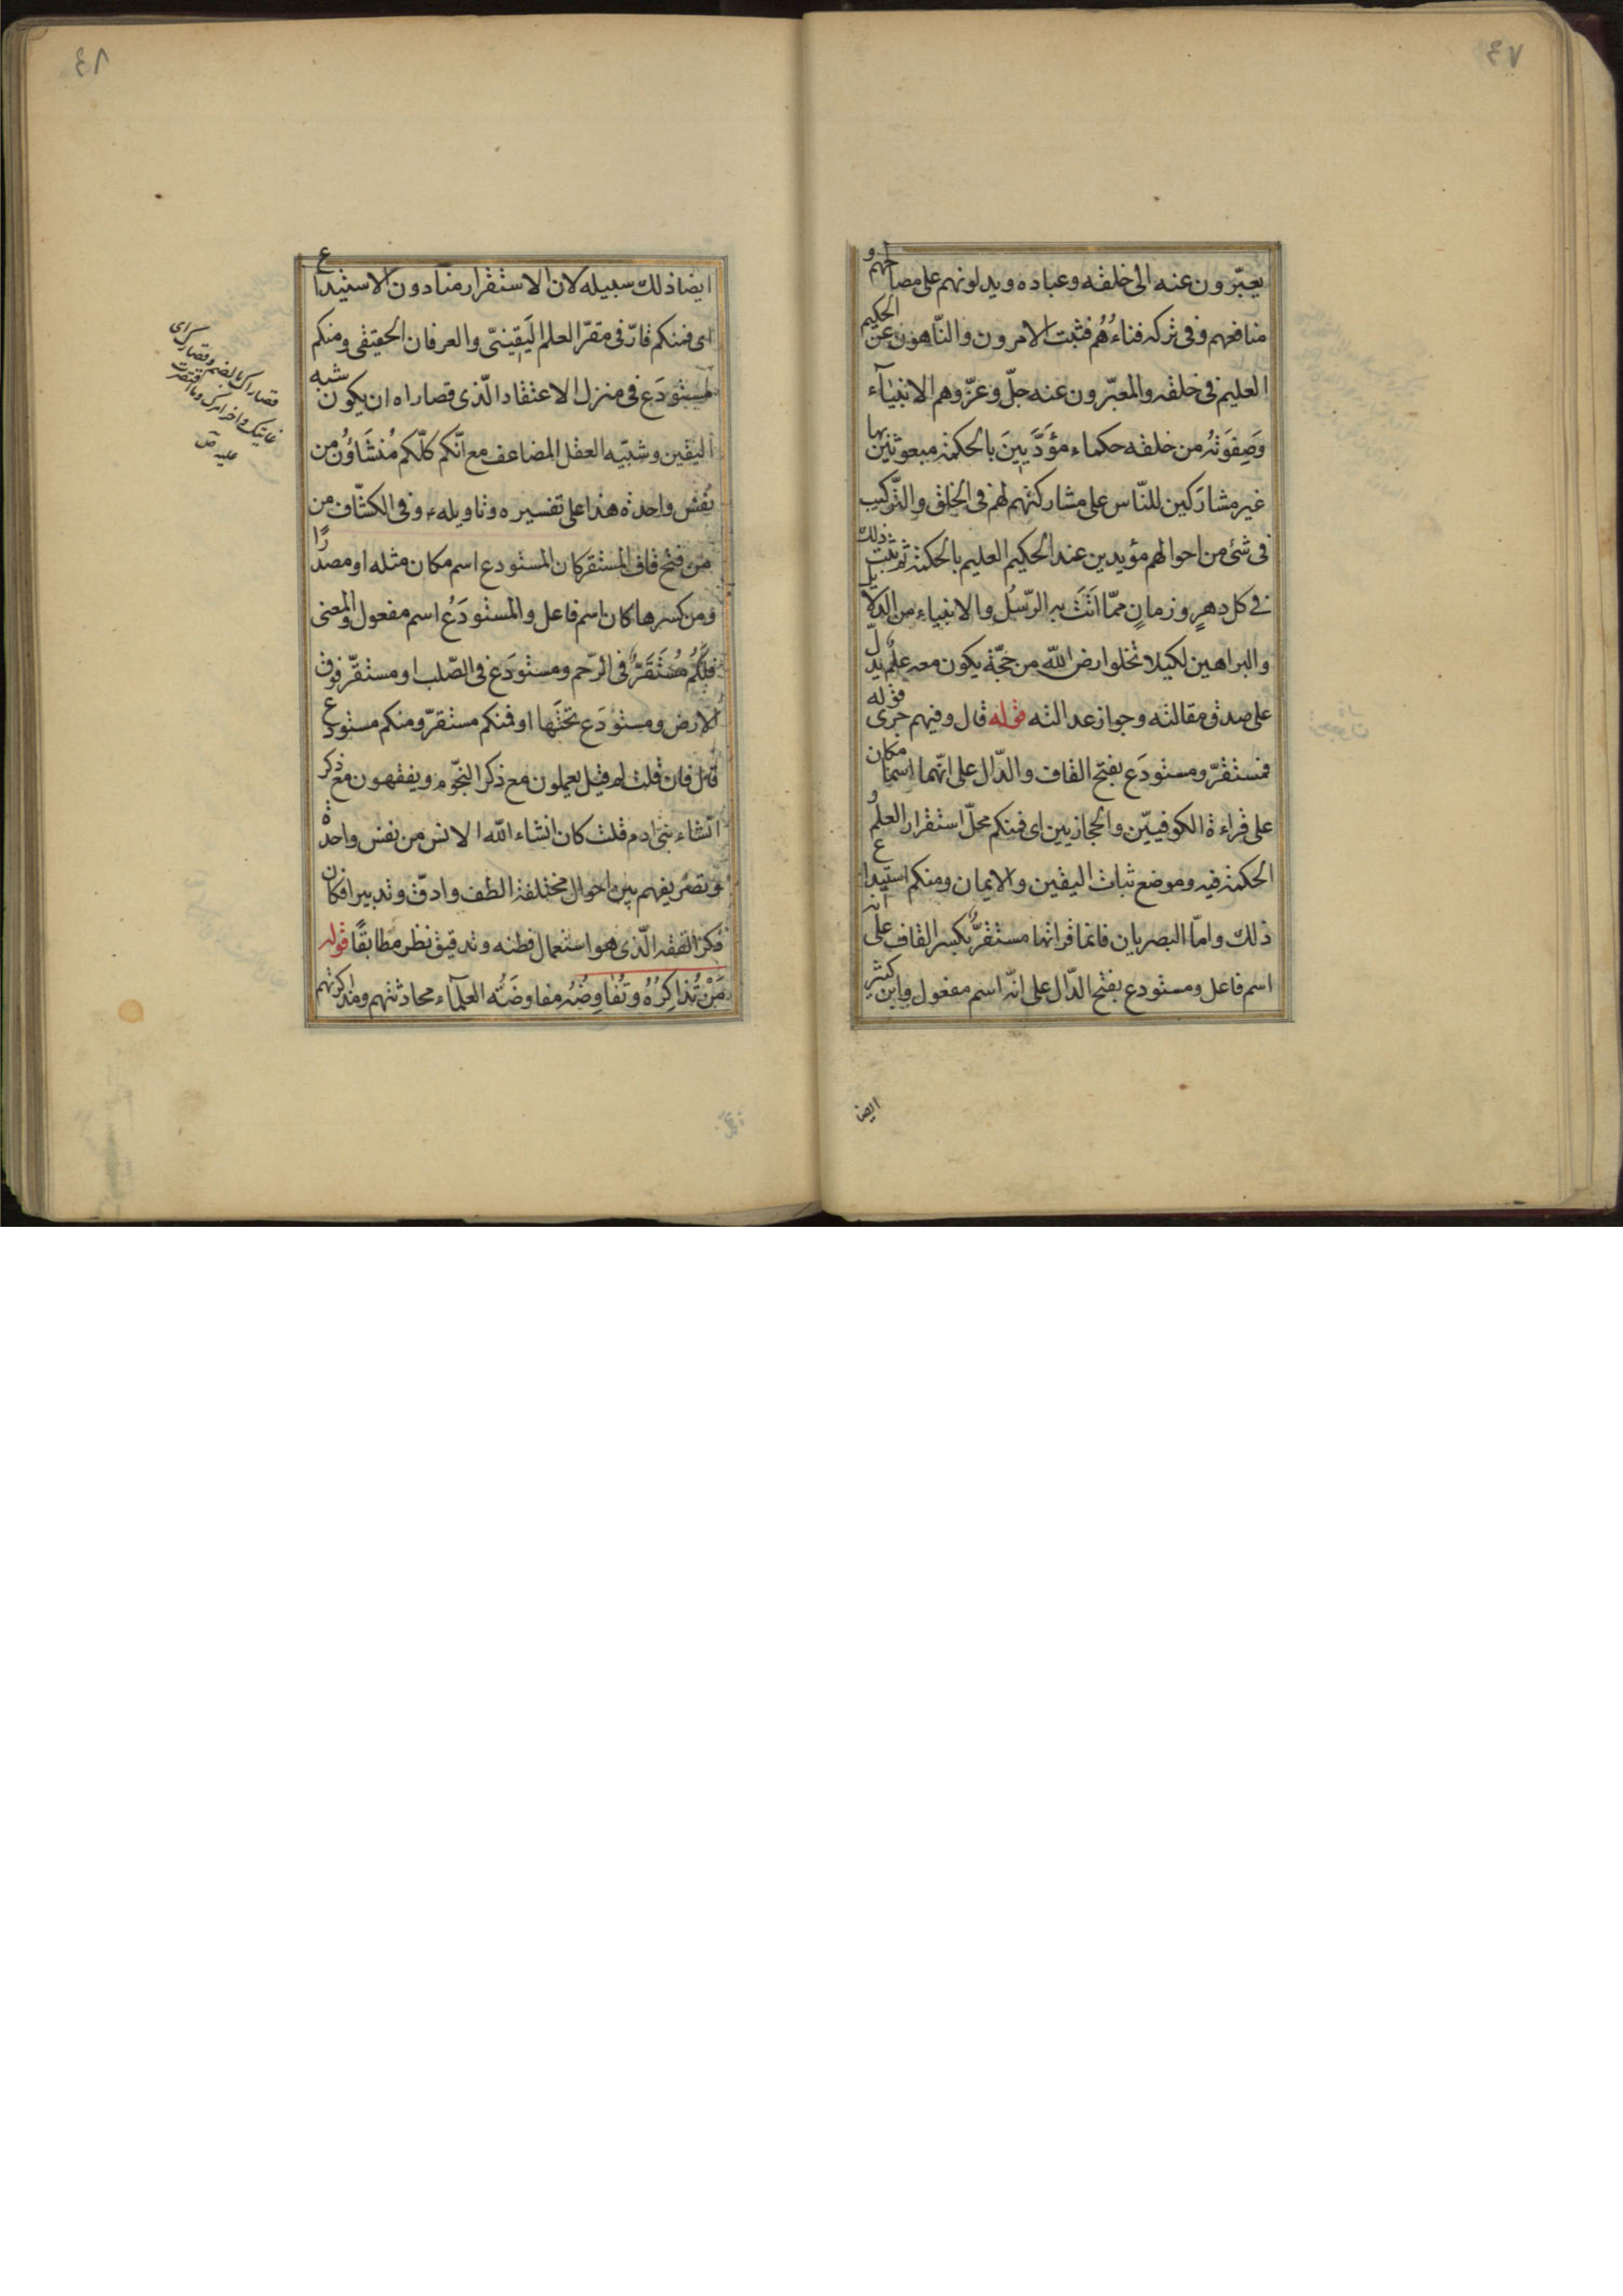 ٤٧
يعبّرون عنه الى خلقه وعباده ويدلونهم على مصالحهم و
منافعهم وفى تركه فناءُهُم فثبت الامرون والنّاهون عن الحكيم
العليم فى خلقه والمعبّرون عنه جلّ وعزّ وهم الانبيآء
وَصِفوَتُه من خلقه حكماء مؤَدَّبينَ بالحكمة مبعوثين بها
غير مشارَكين للنّاس على مشاركتهم لهم فى الخلق والتّركيب
فى شئ من احوالهم مؤيدين عند الحكيم العليم بالحكمة ثم ثبت ذلك
فى كل دهرٍ وزمانٍ ممّا اَتَت به الرّسُل والانبياء من الدلايل
والبراهين لكيلا تخلوا ارض الله من حجّة يكون معه علمٌ يدلّ
على صدق مقالته وجواز عدالته قوله قال وفيهم جرى قوله
فمستقرّ ومستودَع بفتح القاف والدّال على انّهما اسما مكان
على قراءة الكوفيّين والحجازيين اى فمنكم محلّ استقرار العلم و
الحكمة فيه وموضع ثبات اليقين والايمان ومنكم استيداع
ذلك وامّا البصريان فانما قراتها مستقرٌّ بكسر القاف على انه
اسم فاعل ومستودع بفتح الدّال على انّه اسم مفعول وابن كثير
ايضا
٤٨
ايضا ذلك سبيله لان الاستقرار منا دون الاستيداع
اى فمنكم قارّ فى مقرّ العلم اليَقينىّ والعرفان الحقيقى ومنكم
مستودَع فى منزل الاعتقاد الّذى قصاراه ان يكون شبه
اليقين وشبيه العقل المضاعف مع انّكم كلّكم مُنشَاؤُن من
نفس واحدة هذا على تفسيره وتاويله وفى الكشّاف من
من فتح قاف المستقر كان المستودع اسم مكان مثله او مصدرًا
ومن كسرها كان اسم فاعل والمستودَعُ اسم مفعول والمعنى
فلكُم مُستَقَرٌّ فى الرّحم ومستودَع فى الصّلب او مستقرّ فوق
الارض ومستودَع تحتَها او فمنكم مستقرّ ومنكم مستودع
قال فان قلت لم قيل يعلمون مع ذكر النجوم ويفقهون مع ذكر
انشاء بنى ادم قلت كان انشاء الله الانس من نفس واحدة
وتصريفهم بين احوال مختلفة الطف وادقّ وتدبيرا فكان
ذكر الفقه الّذى هو استعمال فطنه وتدقيق نظر مطابقًا قوله
مَنْ تُذاكِرُهُ وتُفاوِضُهُ مفاوضَتُه العلمآء محادثتهم ومذاكرتهم
قصاراك بالضم وقصارك اى
غايتك واخر امرك وما اقتصرت
عليه ص